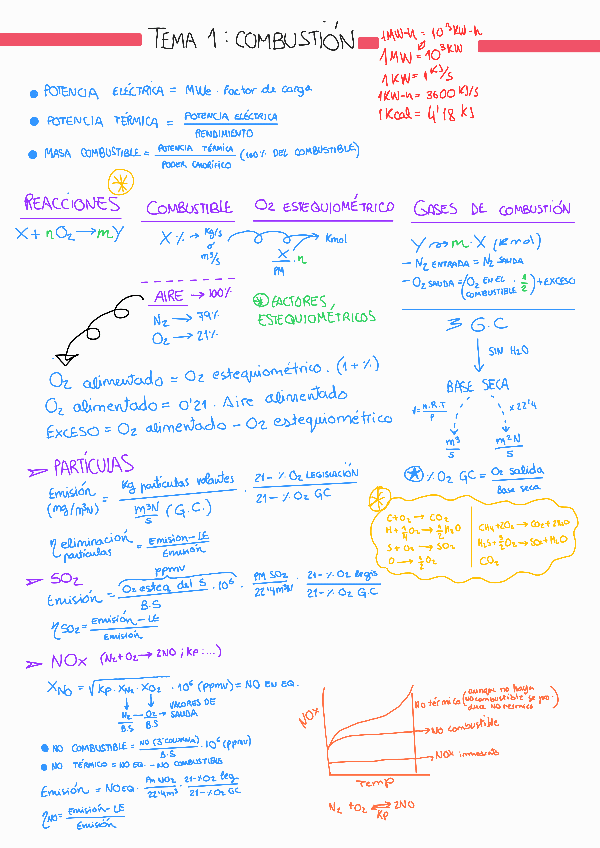 TEMA 1: COMBUSTIÓN
1MW-h = 10³KW-h
1MW = 10³KW
1KW = 1 KJ/s
1KW-h = 3600 KJ/s
1Kcal = 4'18 KJ
• POTENCIA ELÉCTRICA = MWe · Factor de carga
• POTENCIA TÉRMICA = POTENCIA ELÉCTRICA / RENDIMIENTO
• MASA COMBUSTIBLE = POTENCIA TÉRMICA / PODER CALORÍFICO (100% DEL COMBUSTIBLE)
REACCIONES
X + nO2 → mY
COMBUSTIBLE
X% → Kg/s
ó
m³/s
AIRE → 100%
N2 → 79%
O2 → 21%
O2 ESTEQUIOMÉTRICO
Kmol
X/PM · n
* FACTORES ESTEQUIOMÉTRICOS
GASES DE COMBUSTIÓN
Y → m · X (Kmol)
- N2 ENTRADA = N2 SALIDA
- O2 SALIDA = (O2 EN EL COMBUSTIBLE · 1/2) + EXCESO
Σ G.C
SIN H2O
BASE SECA
V = n.R.T / P
x 22'4
m³/s
m³N/s
* % O2 GC = O2 salida / Base seca
O2 alimentado = O2 estequiométrico · (1 + %)
O2 alimentado = 0'21 · Aire alimentado
EXCESO = O2 alimentado - O2 estequiométrico
➤ PARTÍCULAS
Emisión (mg/m³N) = Kg partículas volantes / m³N/s (G.C.) · 21 - % O2 LEGISLACIÓN / 21 - % O2 GC
η eliminación partículas = Emisión - LE / Emisión
C + O2 → CO2
H + 1/4 O2 → 1/2 H2O
S + O2 → SO2
O → 1/2 O2
CH4 + 2O2 → CO2 + 2H2O
H2S + 3/2 O2 → SO2 + H2O
CO2
➤ SO2
ppmv
Emisión = O2 esteq del S / B.S · 10⁶ · PM SO2 / 22'4m³N · 21 - % O2 legis / 21 - % O2 G.C
ηSO2 = Emisión - LE / Emisión
➤ NOx (N2 + O2 → 2NO ; Kp: ...)
XNO = √Kp · XN2 · XO2 · 10⁶ (ppmv) = NO EN EQ.
N2 / B.S
O2 / B.S
VALORES DE SALIDA
• NO COMBUSTIBLE = NO (3ª COLUMNA) / B.S · 10⁶ (ppmv)
• NO TÉRMICO = NO EQ. - NO COMBUSTIBLE
Emisión = NO EQ · PM NO2 / 22'4m³ · 21 - % O2 leg / 21 - % O2 GC
ηNO = Emisión - LE / Emisión
NOx
NO térmico (aunque no haya NO combustible se produce NO térmico)
NO combustible
Temp
N2 + O2 ⇌ 2NO
Kp